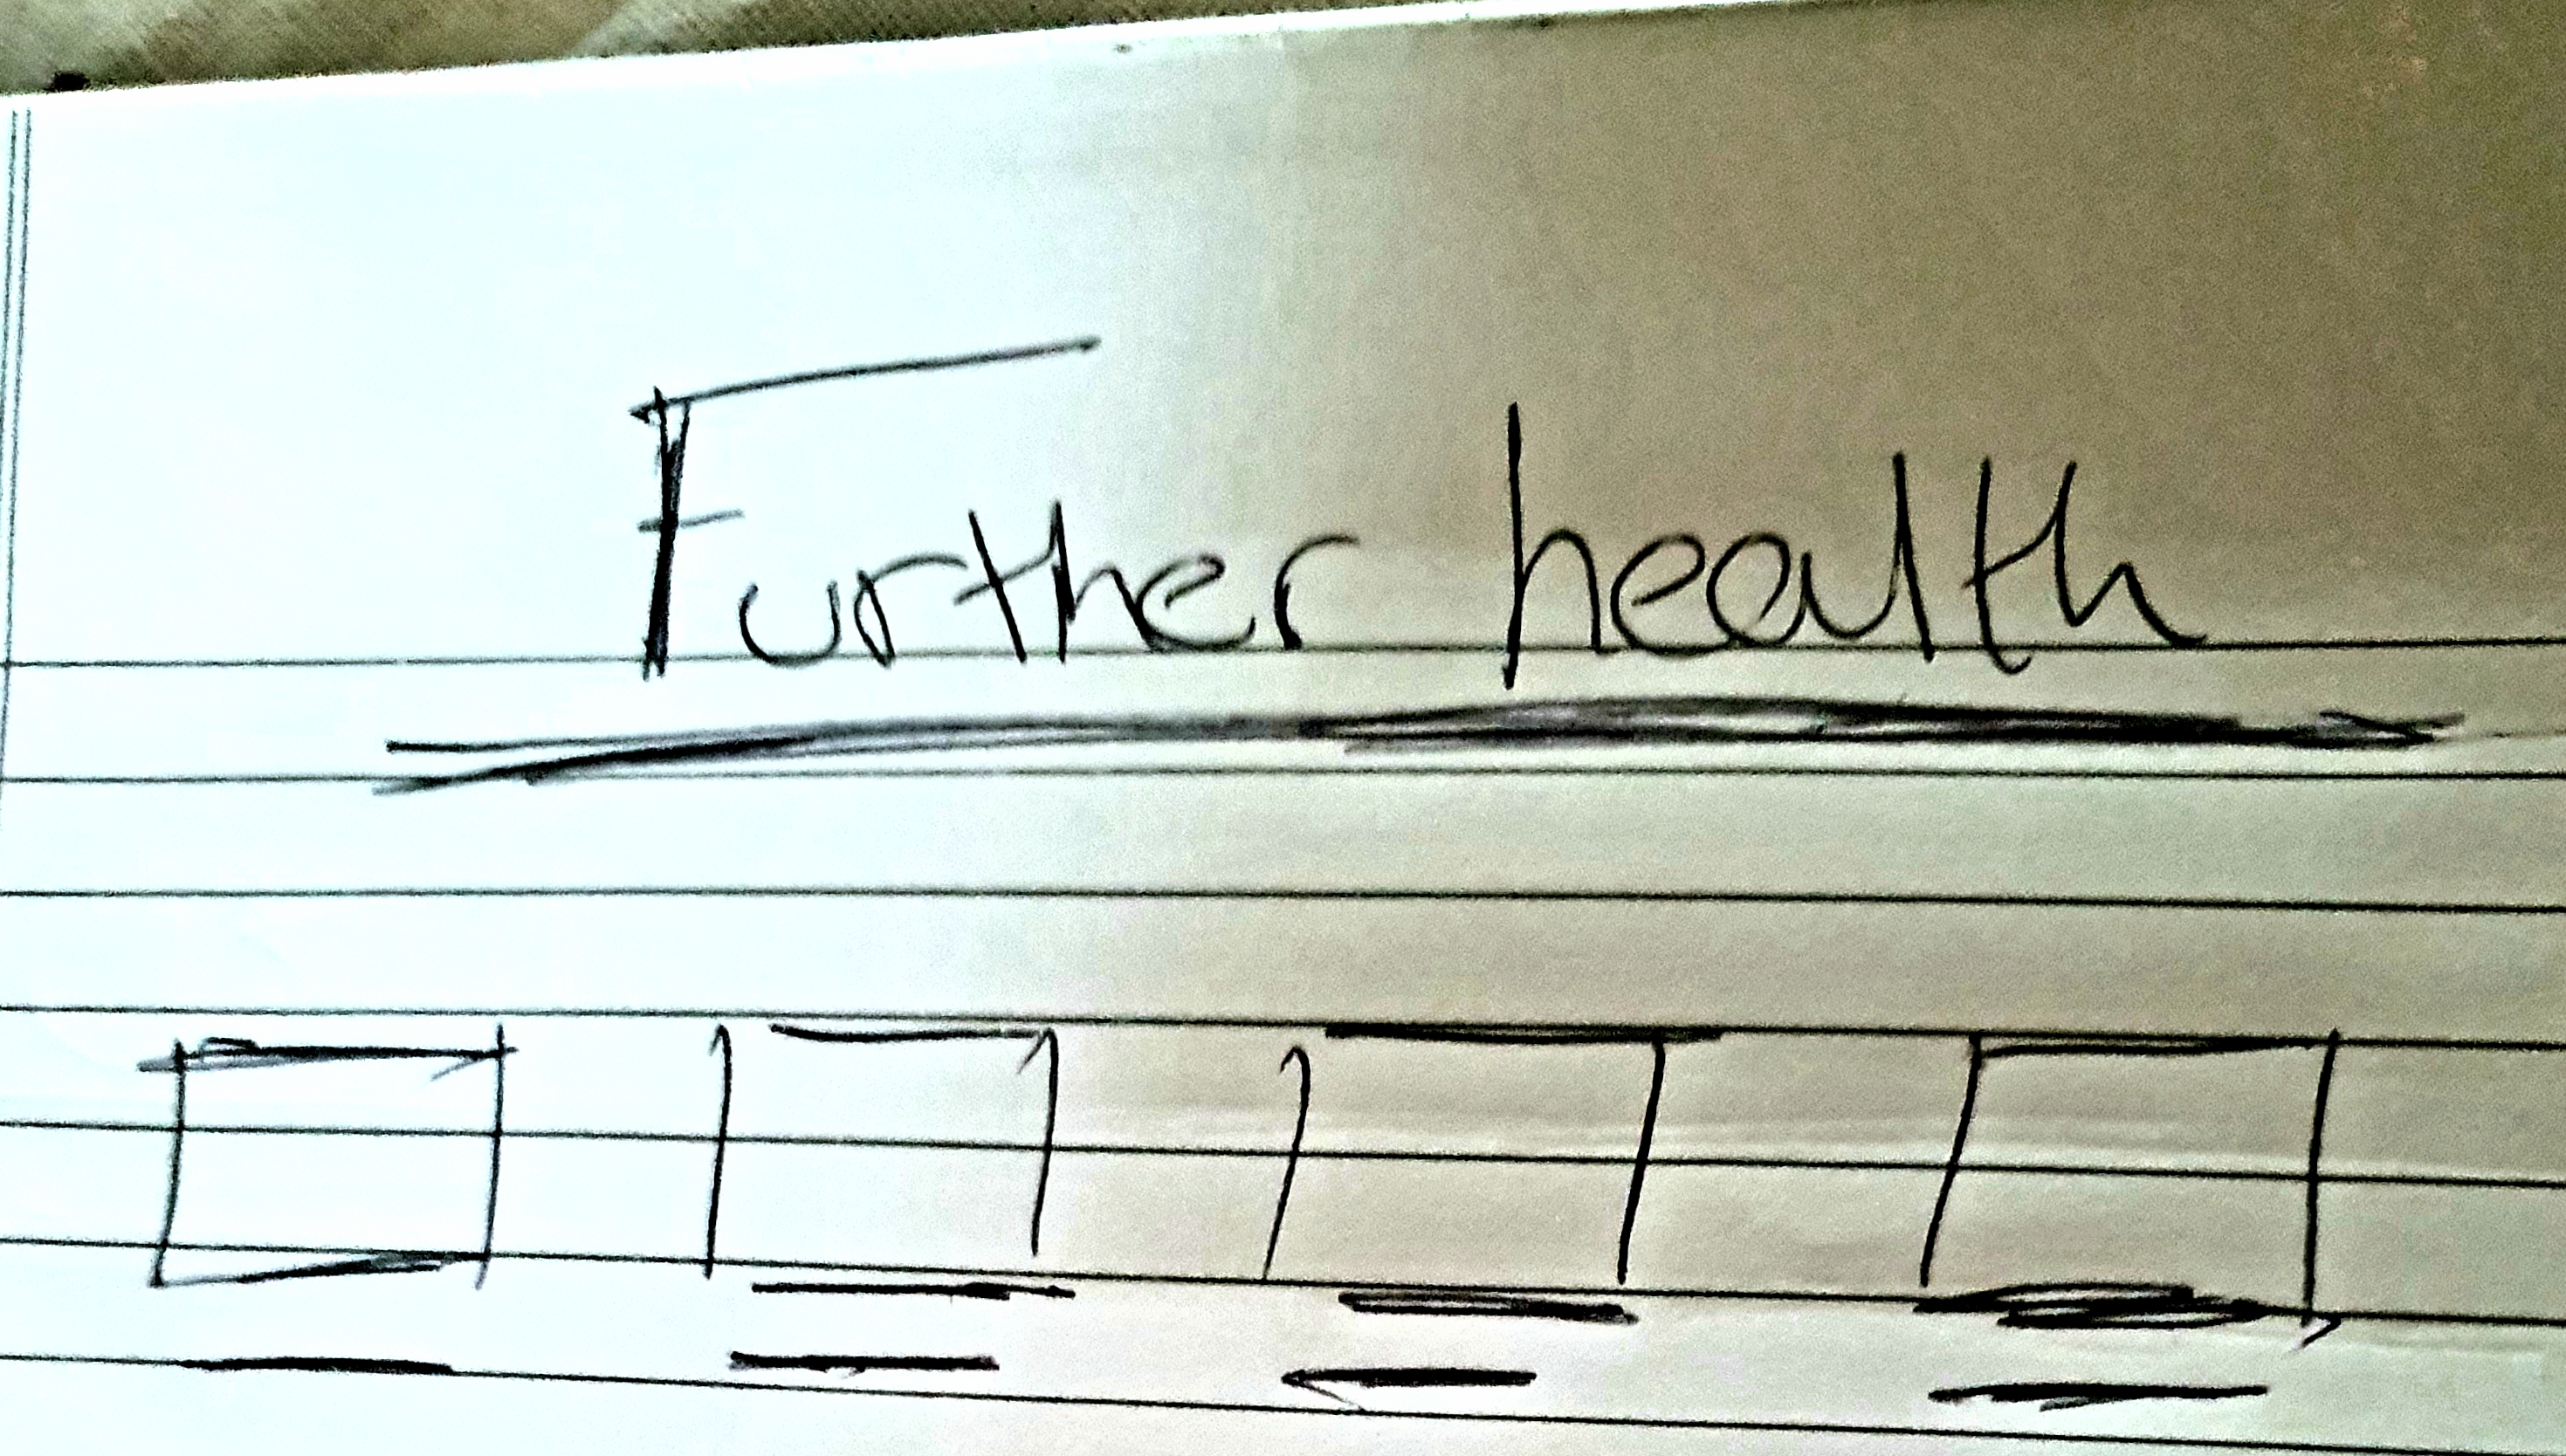 Further health